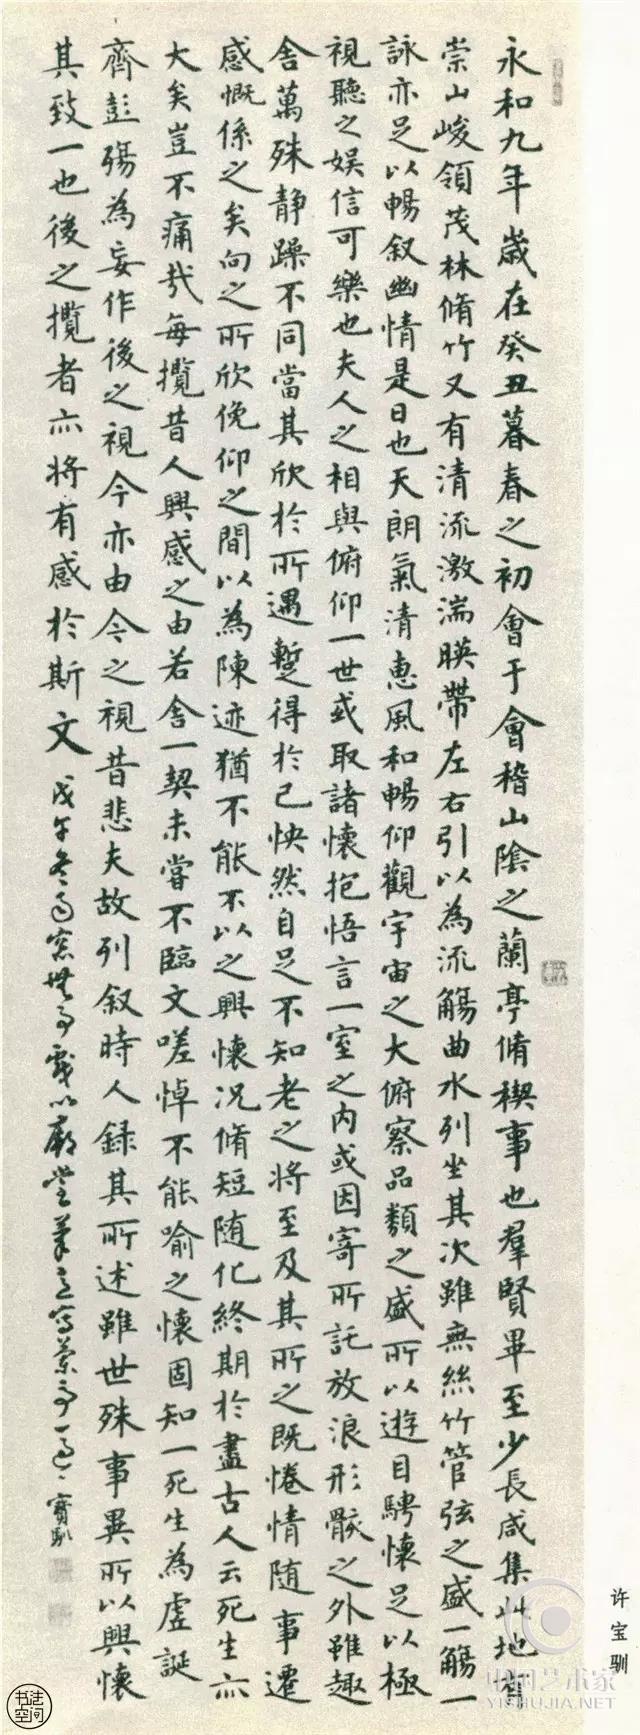 永和九年歲在癸丑暮春之初會于會稽山陰之蘭亭脩禊事也羣賢畢至少長咸集此地有
崇山峻領茂林脩竹又有清流激湍暎帶左右引以為流觴曲水列坐其次雖無絲竹管弦之盛一觴一
詠亦足以暢叙幽情是日也天朗氣清惠風和暢仰觀宇宙之大俯察品類之盛所以遊目騁懷足以極
視聽之娛信可樂也夫人之相與俯仰一世或取諸懷抱悟言一室之內或因寄所託放浪形骸之外雖趣
舍萬殊静躁不同當其欣於所遇暫得於己怏然自足不知老之將至及其所之既惓情隨事遷
感慨係之矣向之所欣俛仰之間以為陳迹猶不能不以之興懷况脩短隨化終期於盡古人云死生亦
大矣豈不痛哉每攬昔人興感之由若合一契未嘗不臨文嗟悼不能喻之懷固知一死生為虛誕
齊彭殤為妄作後之視今亦由今之視昔悲夫故列叙時人錄其所述雖世殊事異所以興懷
其致一也後之攬者亦將有感於斯文 戊午冬雨窓無事戲以廟堂筆意寫蘭亭一過 寶馴
许宝驯
中国艺术家
YISHUJIA.NET
书法空间